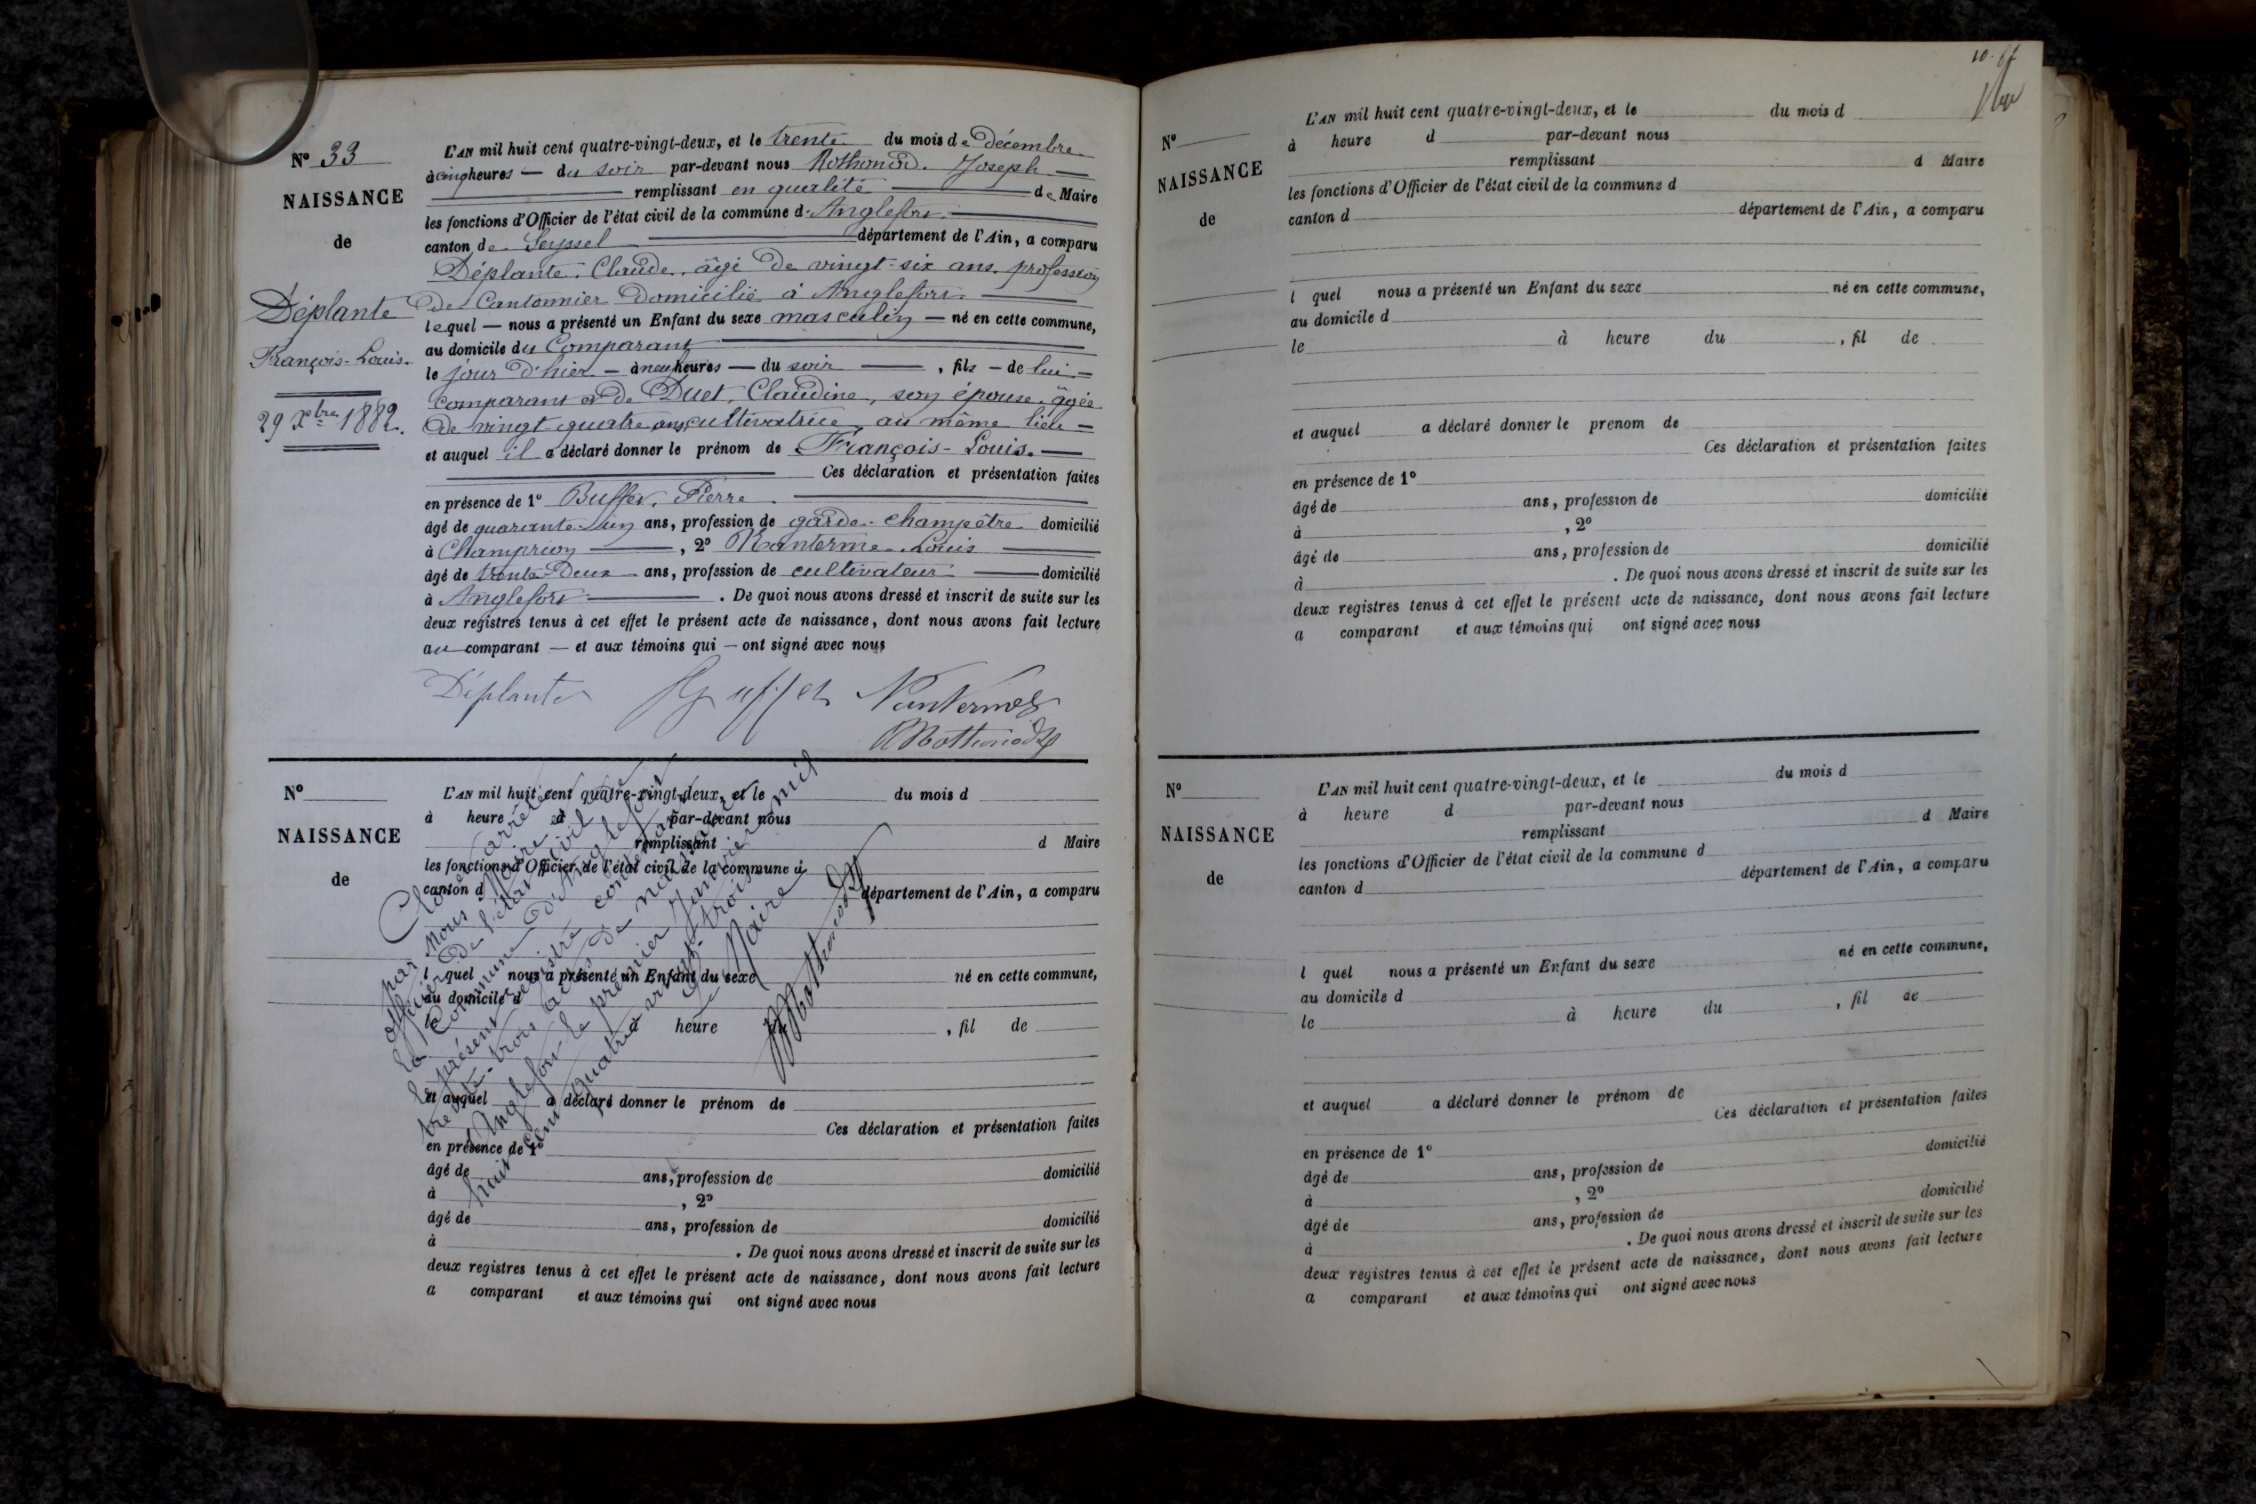 N° 33
NAISSANCE
de
Déplante
François-Louis.
29 Xbre 1882.
L'AN mil huit cent quatre-vingt-deux, et le trente du mois de Décembre
à cinq heures — du soir par-devant nous Mothonod. Joseph —
remplissant en qualité de Maire
les fonctions d'Officier de l'état civil de la commune d'Anglefort
canton de Seyssel département de l'Ain, a comparu
Déplante. Claude. âgé de vingt-six ans. profession
de Cantonnier domicilié à Anglefort.
lequel — nous a présenté un Enfant du sexe masculin — né en cette commune,
au domicile du Comparant
le jour d'hier — à neuf heures — du soir — , fils — de lui —
comparant et de Duet, Claudine, son épouse. âgée
de vingt quatre ans cultivatrice, au même lieu —
et auquel il a déclaré donner le prénom de François-Louis. —
Ces déclaration et présentation faites
en présence de 1° Buffet, Pierre.
âgé de quarante-un ans, profession de garde-champêtre domicilié
à Champrion , 2° Nanterme Louis
âgé de trente-deux ans, profession de cultivateur domicilié
à Anglefort . De quoi nous avons dressé et inscrit de suite sur les
deux registres tenus à cet effet le présent acte de naissance, dont nous avons fait lecture
au comparant — et aux témoins qui — ont signé avec nous
Déplante Buffet Nanterme
Mothonod
N°
NAISSANCE
de
L'AN mil huit cent quatre-vingt-deux, et le du mois d
à heure d par-devant nous
remplissant d Maire
les fonctions d'Officier de l'état civil de la commune d
canton d département de l'Ain, a comparu
l quel nous a présenté un Enfant du sexe né en cette commune,
au domicile d
le à heure du , fil de
et auquel a déclaré donner le prénom de
Ces déclaration et présentation faites
en présence de 1°
âgé de ans, profession de domicilié
à , 2°
âgé de ans, profession de domicilié
à . De quoi nous avons dressé et inscrit de suite sur les
deux registres tenus à cet effet le présent acte de naissance, dont nous avons fait lecture
a comparant et aux témoins qui ont signé avec nous
Clos et arrêté
par nous Maire
officier de l'état civil de
la Commune d'Anglefort
le présent registre contenant
trente-trois actes de naissance
à Anglefort le premier Janvier mil
huit cent quatre-vingt-trois
Le Maire
Mothonod
N°
NAISSANCE
de
L'AN mil huit cent quatre-vingt-deux, et le du mois d
à heure d par-devant nous
remplissant d Maire
les fonctions d'Officier de l'état civil de la commune d
canton d département de l'Ain, a comparu
l quel nous a présenté un Enfant du sexe né en cette commune,
au domicile d
le à heure du , fil de
et auquel a déclaré donner le prenom de
Ces déclaration et présentation faites
en présence de 1°
âgé de ans, profession de domicilié
à , 2°
âgé de ans, profession de domicilié
à . De quoi nous avons dressé et inscrit de suite sur les
deux registres tenus à cet effet le présent acte de naissance, dont nous avons fait lecture
a comparant et aux témoins qui ont signé avec nous
N°
NAISSANCE
de
L'AN mil huit cent quatre-vingt-deux, et le du mois d
à heure d par-devant nous
remplissant d Maire
les fonctions d'Officier de l'état civil de la commune d
canton d département de l'Ain, a comparu
l quel nous a présenté un Enfant du sexe né en cette commune,
au domicile d
le à heure du , fil de
et auquel a déclaré donner le prénom de
Ces déclaration et présentation faites
en présence de 1°
âgé de ans, profession de domicilié
à , 2°
âgé de ans, profession de domicilié
à . De quoi nous avons dressé et inscrit de suite sur les
deux registres tenus à cet effet le présent acte de naissance, dont nous avons fait lecture
a comparant et aux témoins qui ont signé avec nous